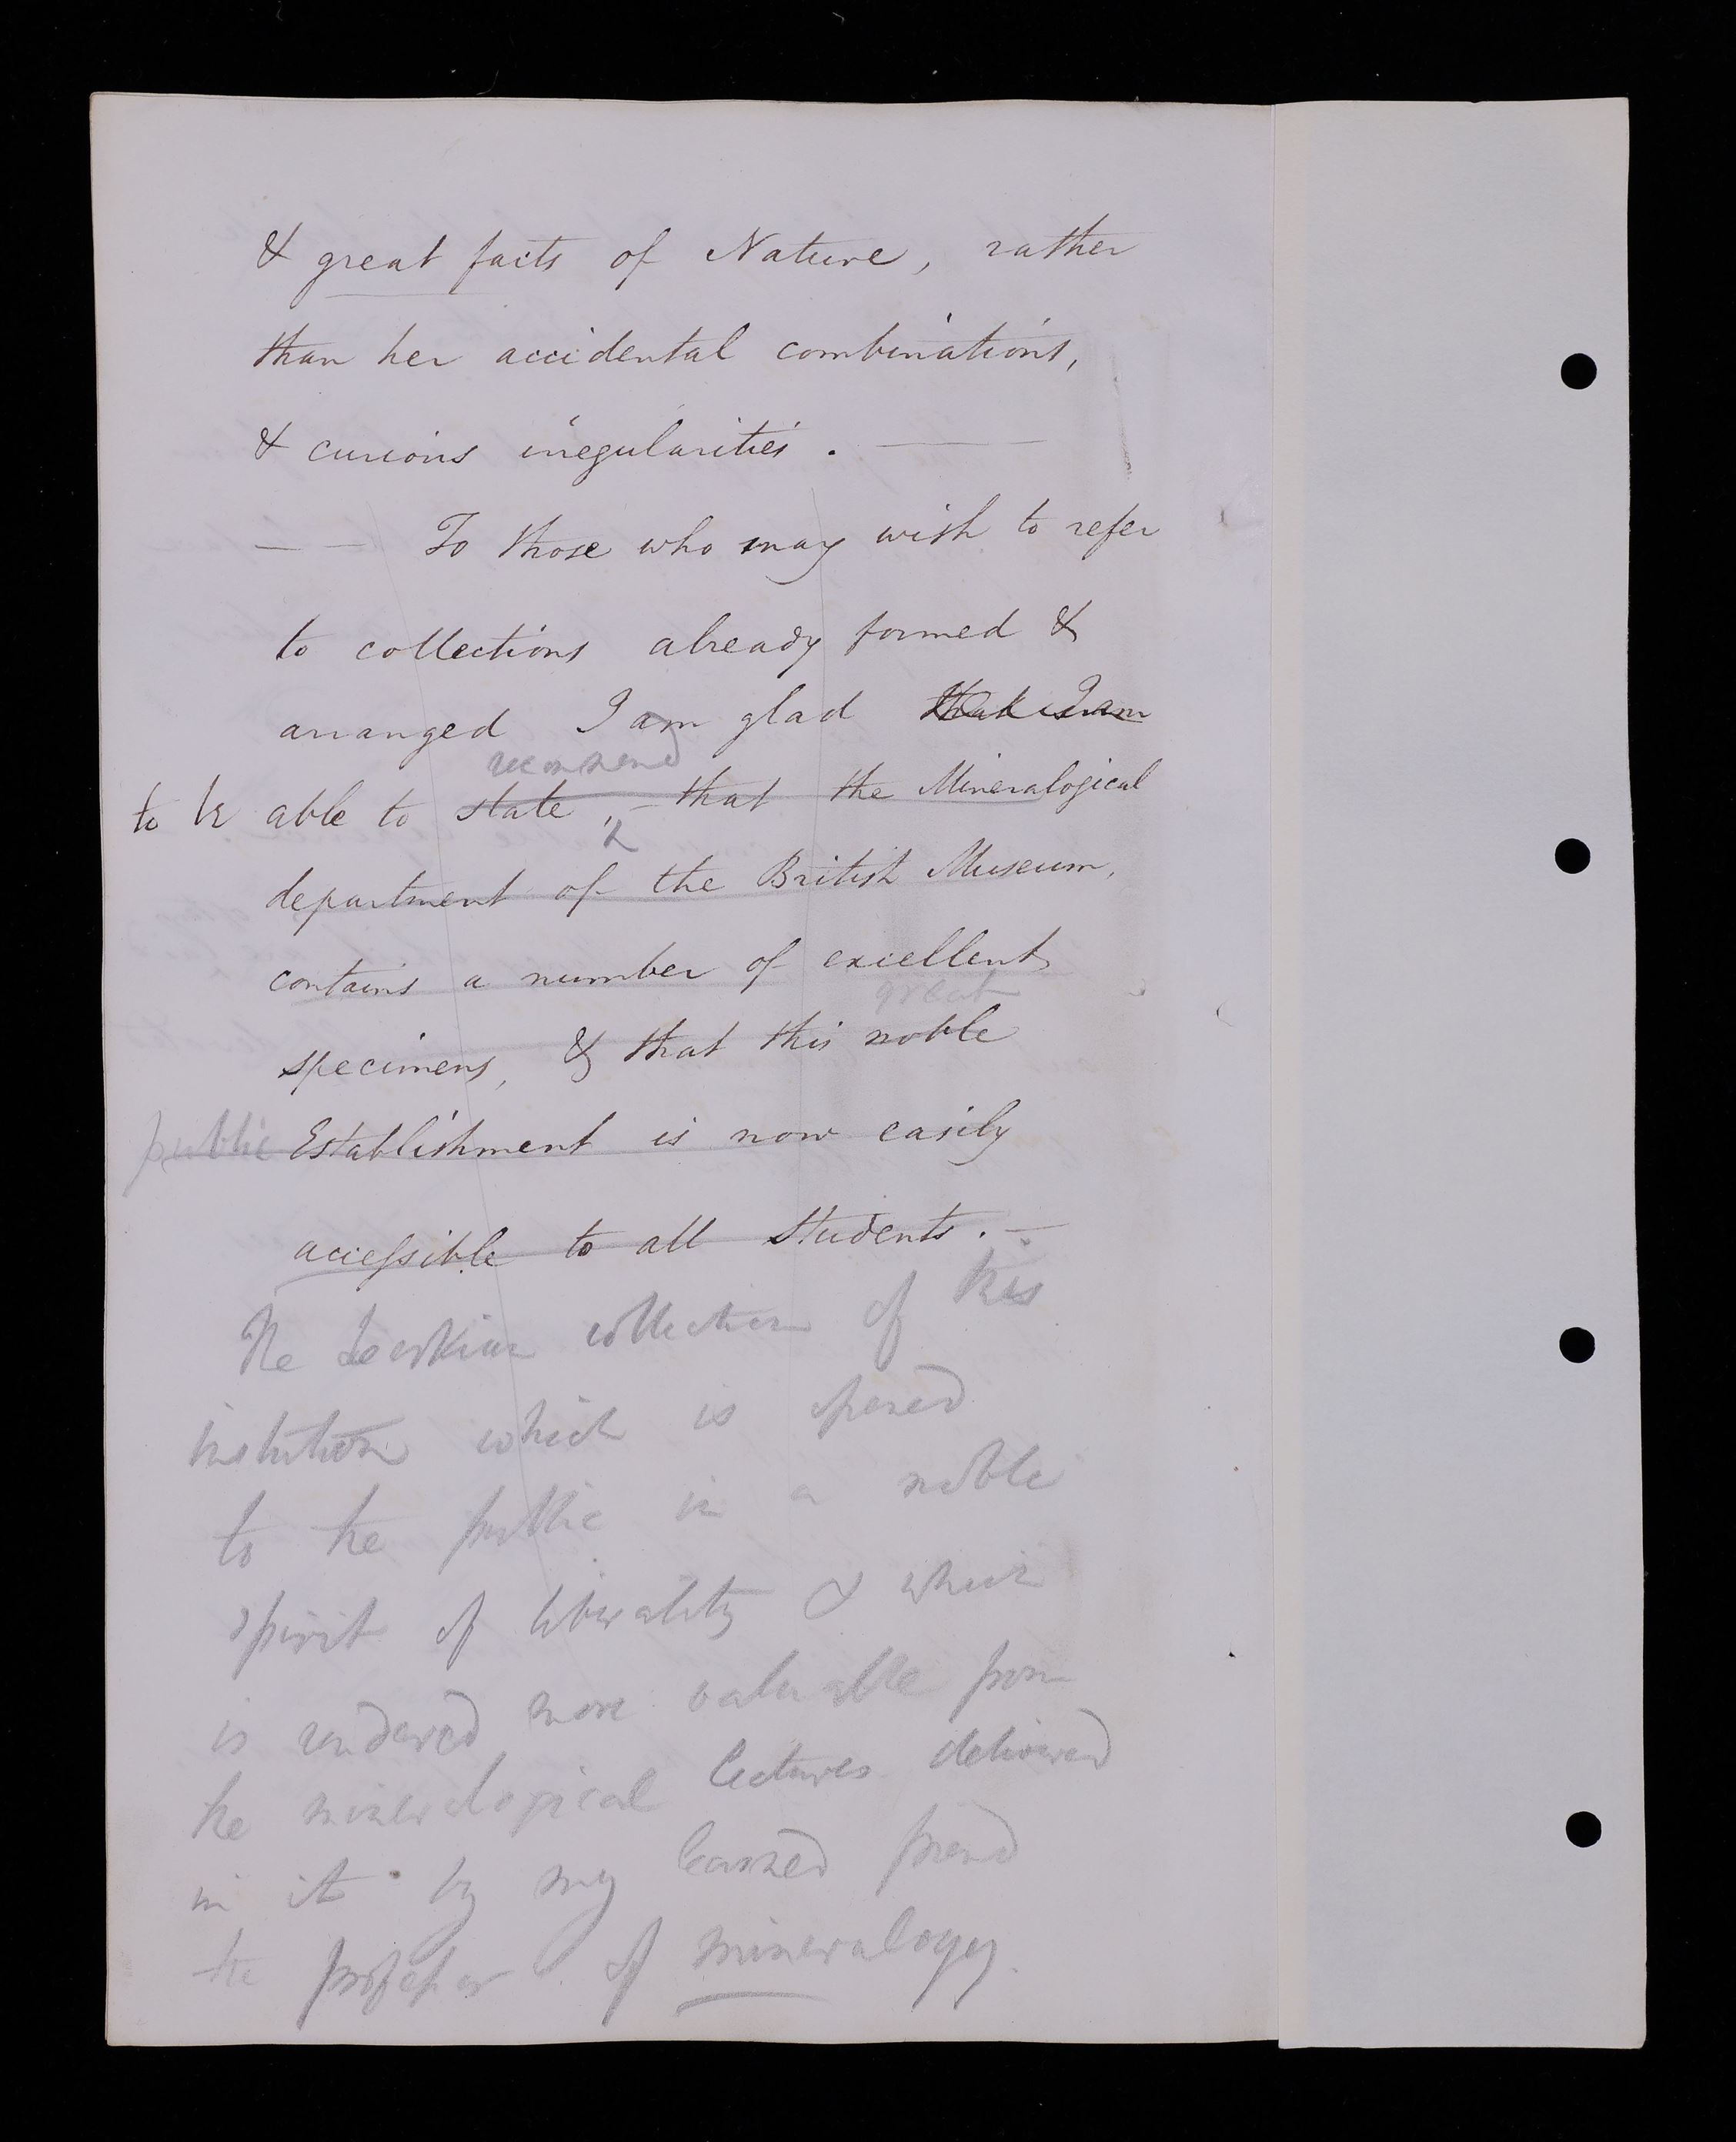 & great facts of Nature, rather
than her accidental combinations,
& curious irregularities. —
— — To those who may wish to refer
to collections already formed &
arranged I am glad that I am
recommend
to be able to state, – that the Mineralogical
department of the British Museum,
contains a number of excellent
great
specimens, & that this noble
public Establishment is now easily
accessible to all students. —
The Leskian collection of this
institution which is opened
to the public in a noble
spirit of liberality & which
is rendered more valuable from
the mineralogical lectures delivered
in it by my learned friend
the professor of mineralogy.